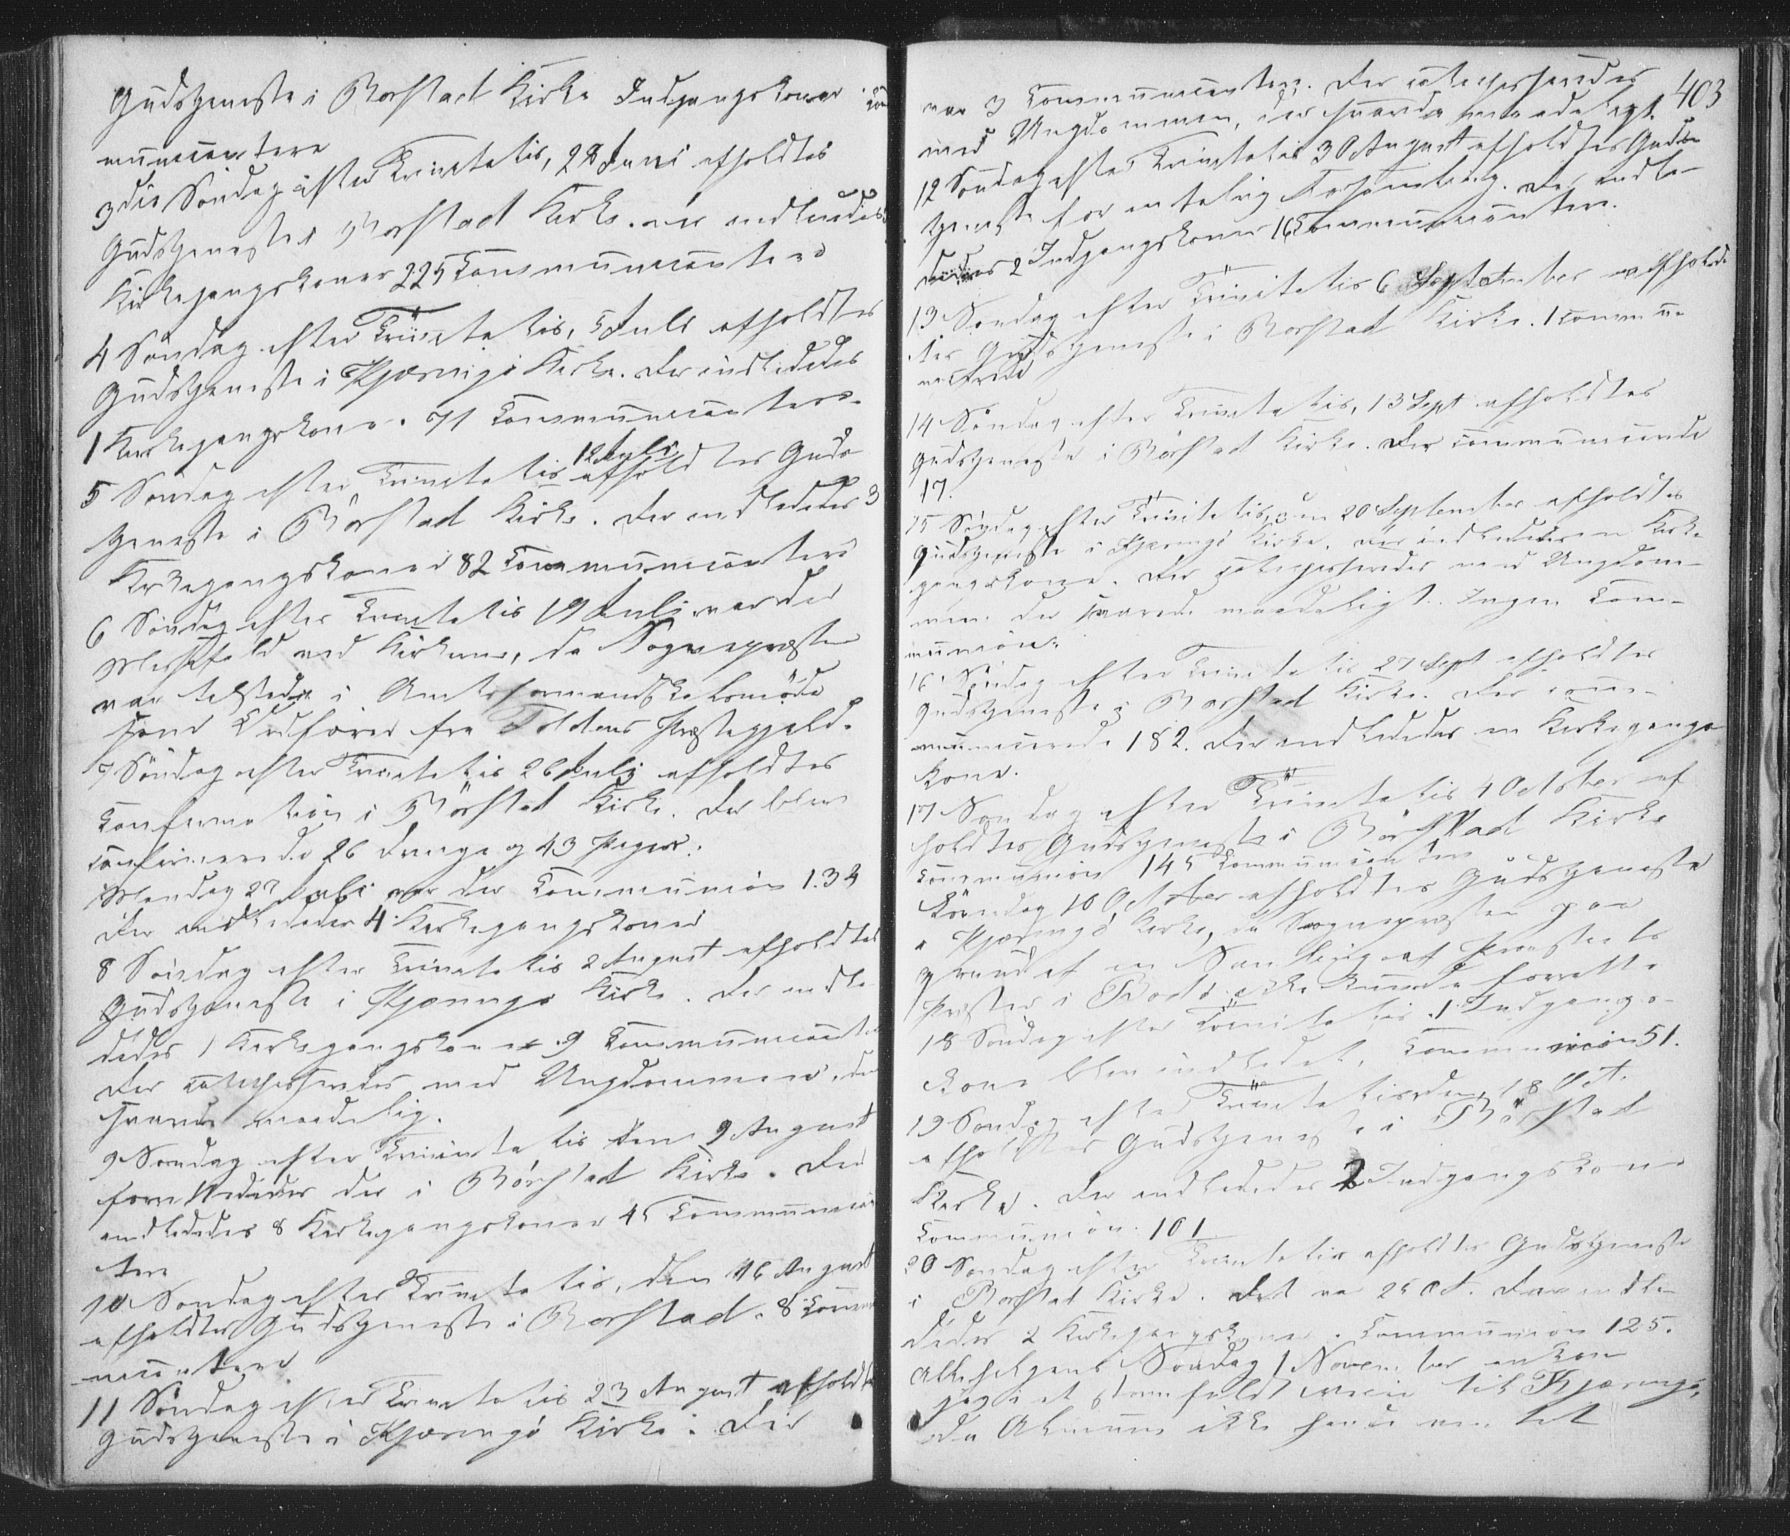 Gudstjeneste i Rørstad Kirke Indgangskoner Com
municantere
3die Søndag efter Trinitatis, 28 Juni afholdtes
Gudstjeneste i Rørstad Kirke. der indlededes
Kirkegangskoner 225 Communicantere
4 Søndag efter Trinitatis, 5 Juli afholdtes
Gudstjeneste i Kjæringø Kirke. Der indlededes
1 Kirkegangskone. 71 Communicantere.
5 Søndag efter Trinitatis 12 Juli afholdtes Guds
tjeneste i Rørstad Kirke. Der indlededes 3
Kirkegangskoner 82 Communicantere
6 Søndag efter Trinitatis 19 Juli var der
Messefald ved Kirkerne, da Sognepræsten
var tilstede i Amtsformandskabsmøde
som Ordfører fra Foldens Præstegjeld.
7 Søndag efter Trinitatis 26 Juli afholdtes
Confirmation i Rørstad Kirke. Der blev
confirmerede 26 Drenge og 43 Piger.
Mandag 27 Juli var der Communion 134
Der indlededes 4 Kirkegangskoner
8 Søndag efter Trinitatis 2 August afholdtes
Gudstjeneste i Kjæringø Kirke. Der indle
dedes 1 Kirkegangskone 9 Communicante
Der catechiseredes med Ungdommen, der
svarede maadelig.
9 Søndag efter Trinitatis den 9 August
forrettedes der i Rørstad Kirke. Der
indlededes 8 Kirkegangskoner 45 Communican
tere
10 Søndag efter Trinitatis, den 16 August
afholdtes Gudstjeneste i Rørstad. 8 Commu
nicantere.
11 Søndag efter Trinitatis 23 August afholdtes
Gudstjeneste i Kjæringø Kirke. Der
403
var 3 Communicantere. Der catechiseredes
med Ungdommen, der svarede maadeligt.
12 Søndag efter Trinitatis 30 August afholdtes Guds
tjeneste for en talrig Forsamling. Der indle
dedes 2 Indgangskoner 16 Communicantere.
13 Søndag efter Trinitatis 6 September afholdt
tes Gudstjeneste i Rørstad Kirke. 1 commu
nicerede
14 Søndag efter Trinitatis, 13 Sept afholdtes
Gudstjeneste i Rørstad Kirke. Der communicerede
17.
15 Søndag efter Trinitatis, den 20 September afholdtes
Gudstjeneste i Kjæringø Kirke, der indlededes en Kirke
gangskone. Der catechiseredes med Ungdom
men der svarede maadeligt. Ingen Com
munion.
16 Søndag efter Trinitatis 27 Sept afholdtes
Gudstjeneste i Rørstad Kirke. Der com
municerede 182. Der indlededes en Kirkegangs
kone.
17 Søndag efter Trinitatis 4 October af
holdtes Gudstjeneste i Rørstad Kirke
Communion 145 Communicantere
Lørdag 10 October afholdtes Gudstjeneste
i Kjæringø Kirke, da Sognepræsten paa
grund af en Samling af Provstiets
Præster i Bodø ikke kunde forrette
18 Søndag efter Trinitatis. 1 Indgangs
kone blev indledet. Communion 51.
19 Søndag efter Trinitatis den 18 Oct.
afholdtes Gudstjeneste i Rørstad
Kirke. Der indlededes 2 Indgangskoner
Communion 101
20 Søndag efter Trinitatis afholdtes Gudstjeneste
i Rørstad Kirke. Det var 25 Oct. Der indle
dedes 2 Kirkegangskoner. Communion 125.
Allehelgens Søndag 1 November ankom
jeg i et stormfuldt veir til Kjæringø,
da Almuen ikke havde ventet